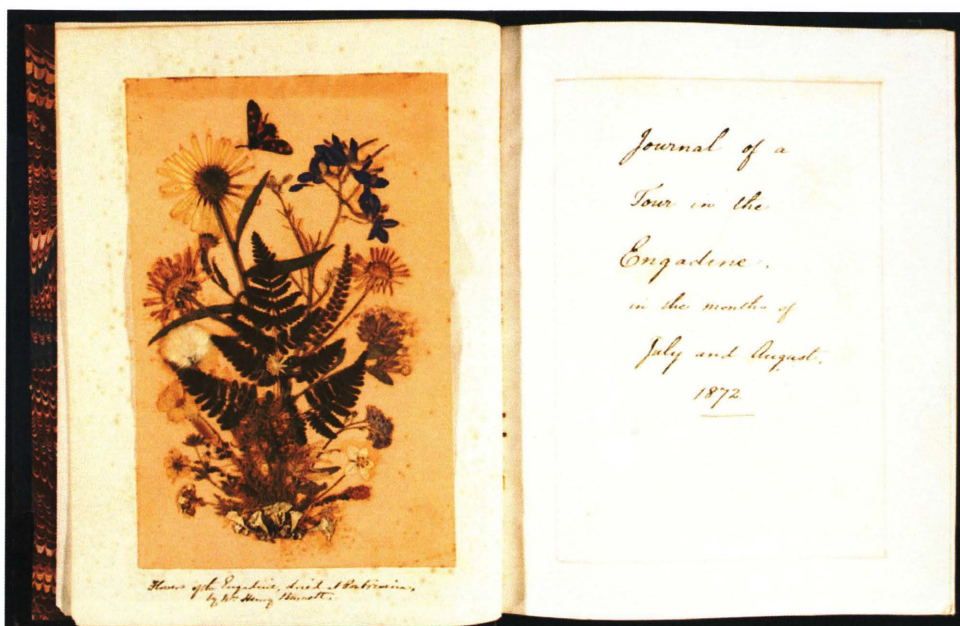 Flowers of the Engadine, dried at Pontresina,
by Wm Henry
Journal of a
Tour in the
Engadine.
in the months of
July and August.
1872